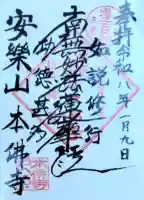 奉拝 令和八年一月九日
如説修行
南無妙法蓮華経
妙徳甚多
安樂山 本佛寺